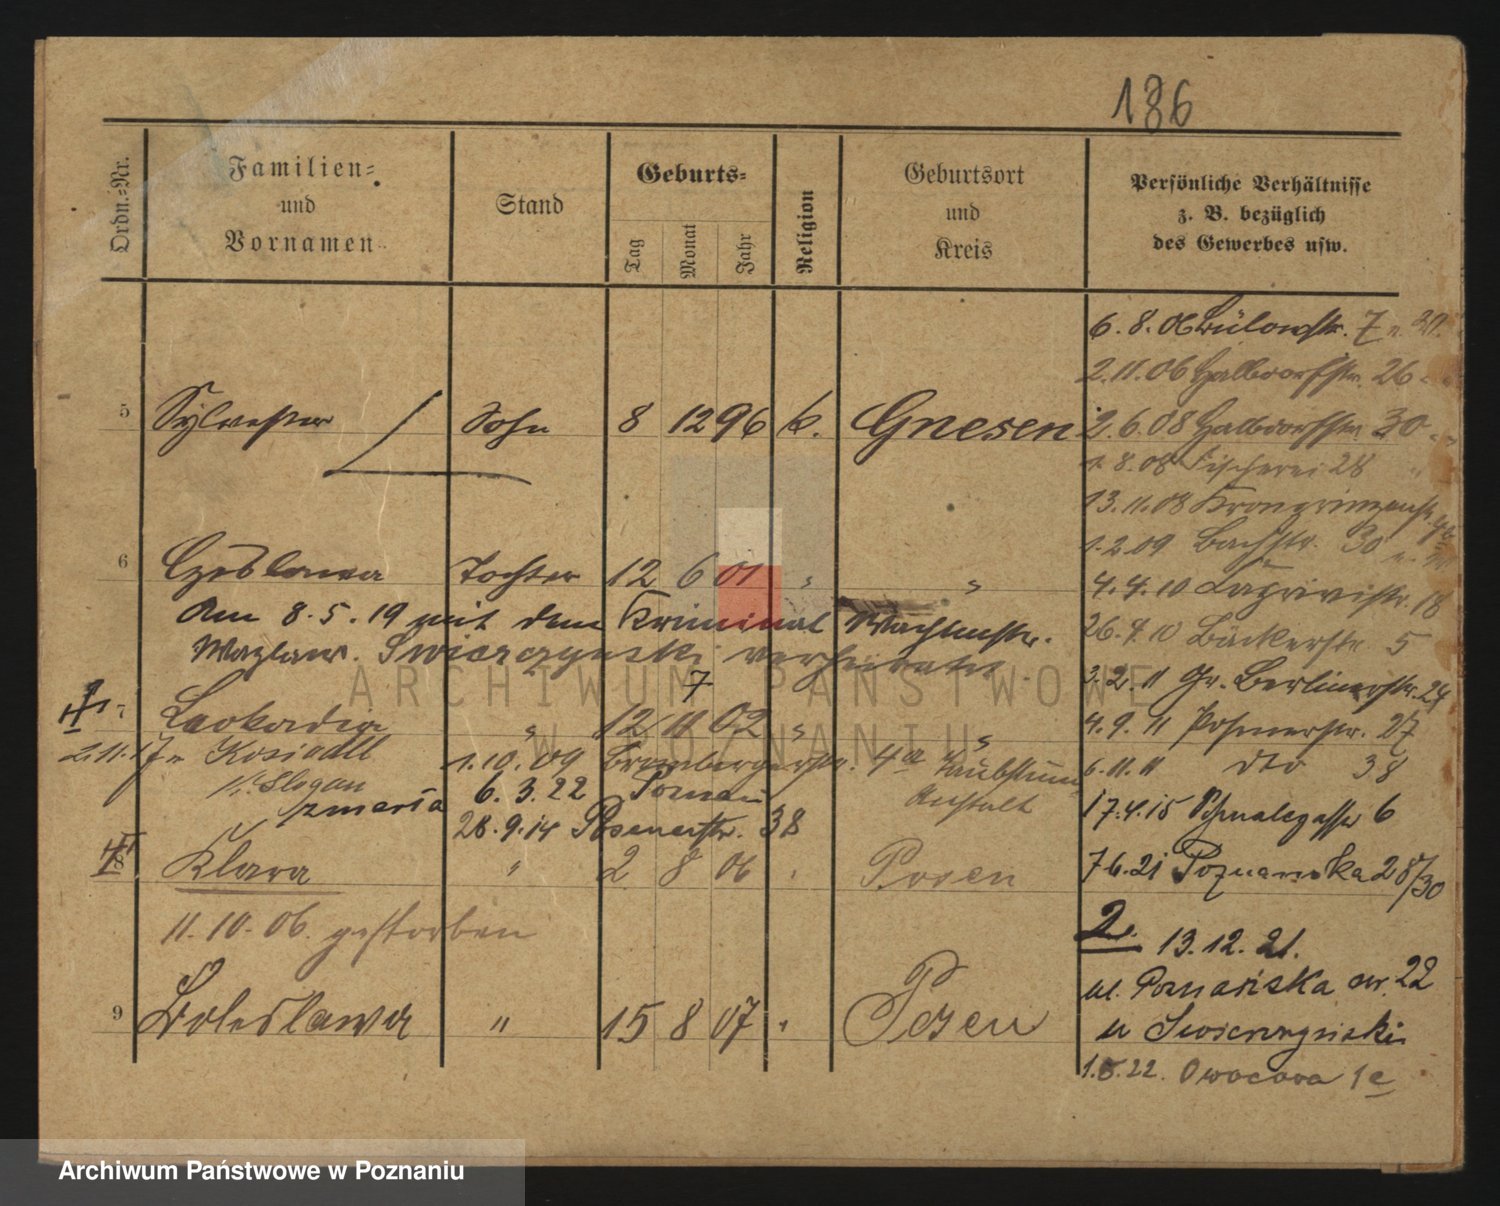 186
Ordn.=Nr.
Familien=
und
Vornamen
Stand
Geburts=
Tag
Monat
Jahr
Religion
Geburtsort
und
Kreis
Persönliche Verhältnisse
z. B. bezüglich
des Gewerbes usw.
6. 8. 06 Bülowstr. 7
2. 11. 06 Halbdorfstr. 26
5 Sylvester Sohn 8 12 96 k. Gnesen
2. 6. 08 Halbdorfstr. 30
1. 8. 08 Fischerei 28
13. 11. 08 Kronprinzenstr.
1. 2. 09 Bachstr. 30
6 Czeslawa Tochter 12 6 01 "  "
4. 4. 10 18
Am 8. 5. 19 mit dem Kriminal Wachtmstr.
26. 4. 10 Bäckerstr. 5
Wazlaw. Swierczynski verheiratet.
3. 2. 11 Gr. Berlinerstr. 24
7
7 Leokadia " 12 11 02 "  "
4. 9. 11 Posenerstr. 27
2. 11. 17 v. Kosiedll 1. 10. 09 Brombergerstr. 4a Taubstumm
Anstalt
6. 11. 11 dto 38
6. 3. 22 Poznań
zmarła
17. 4. 15 Schmalegasse 6
28. 9. 14 Posenerstr. 38
8 Klara " 2 8 06 " Posen
7 6. 21 Poznanska 28/30
11. 10. 06. gestorben
2. 13. 12. 21.
ul. Poznańska nr. 22
u Swierczynski
9 Boleslawa " 15 8 07 " Posen
1. 5. 22. Owocowa 1e
ARCHIWUM PAŃSTWOWE
W POZNANIU
Archiwum Państwowe w Poznaniu